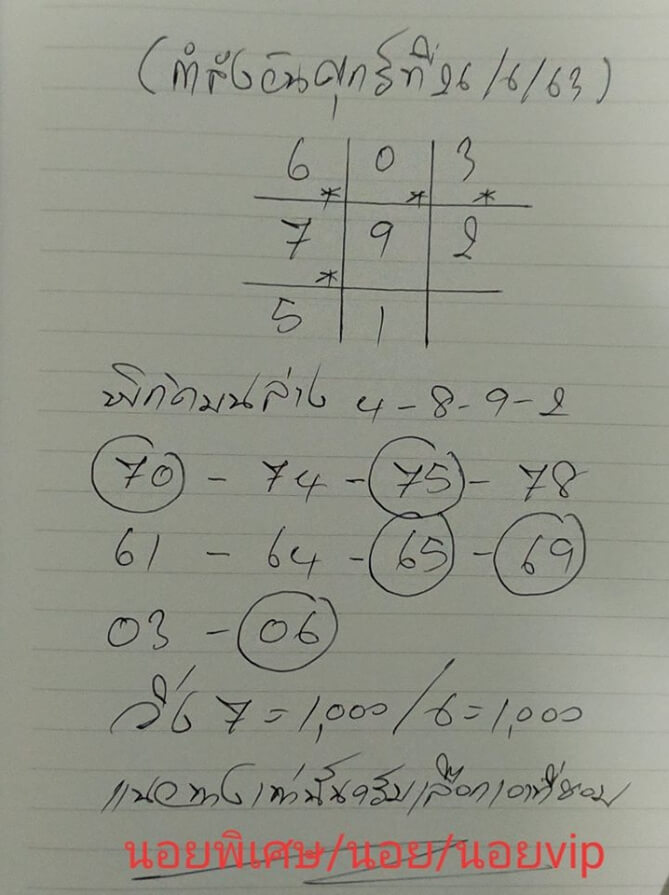 (กำลังวันศุกร์ที่ 26/6/63)
6 0 3
* * *
7 9 2
*
5 1
พิกัดบนล่าง 4-8-9-2
70 - 74 - 75 - 78
61 - 64 - 65 - 69
03 - 06
วิ่ง 7=1,000/6=1,000
แนวทางเท่านั้นครับเลือกเอาที่ชอบ
นอยพิเศษ/นอย/นอยvip